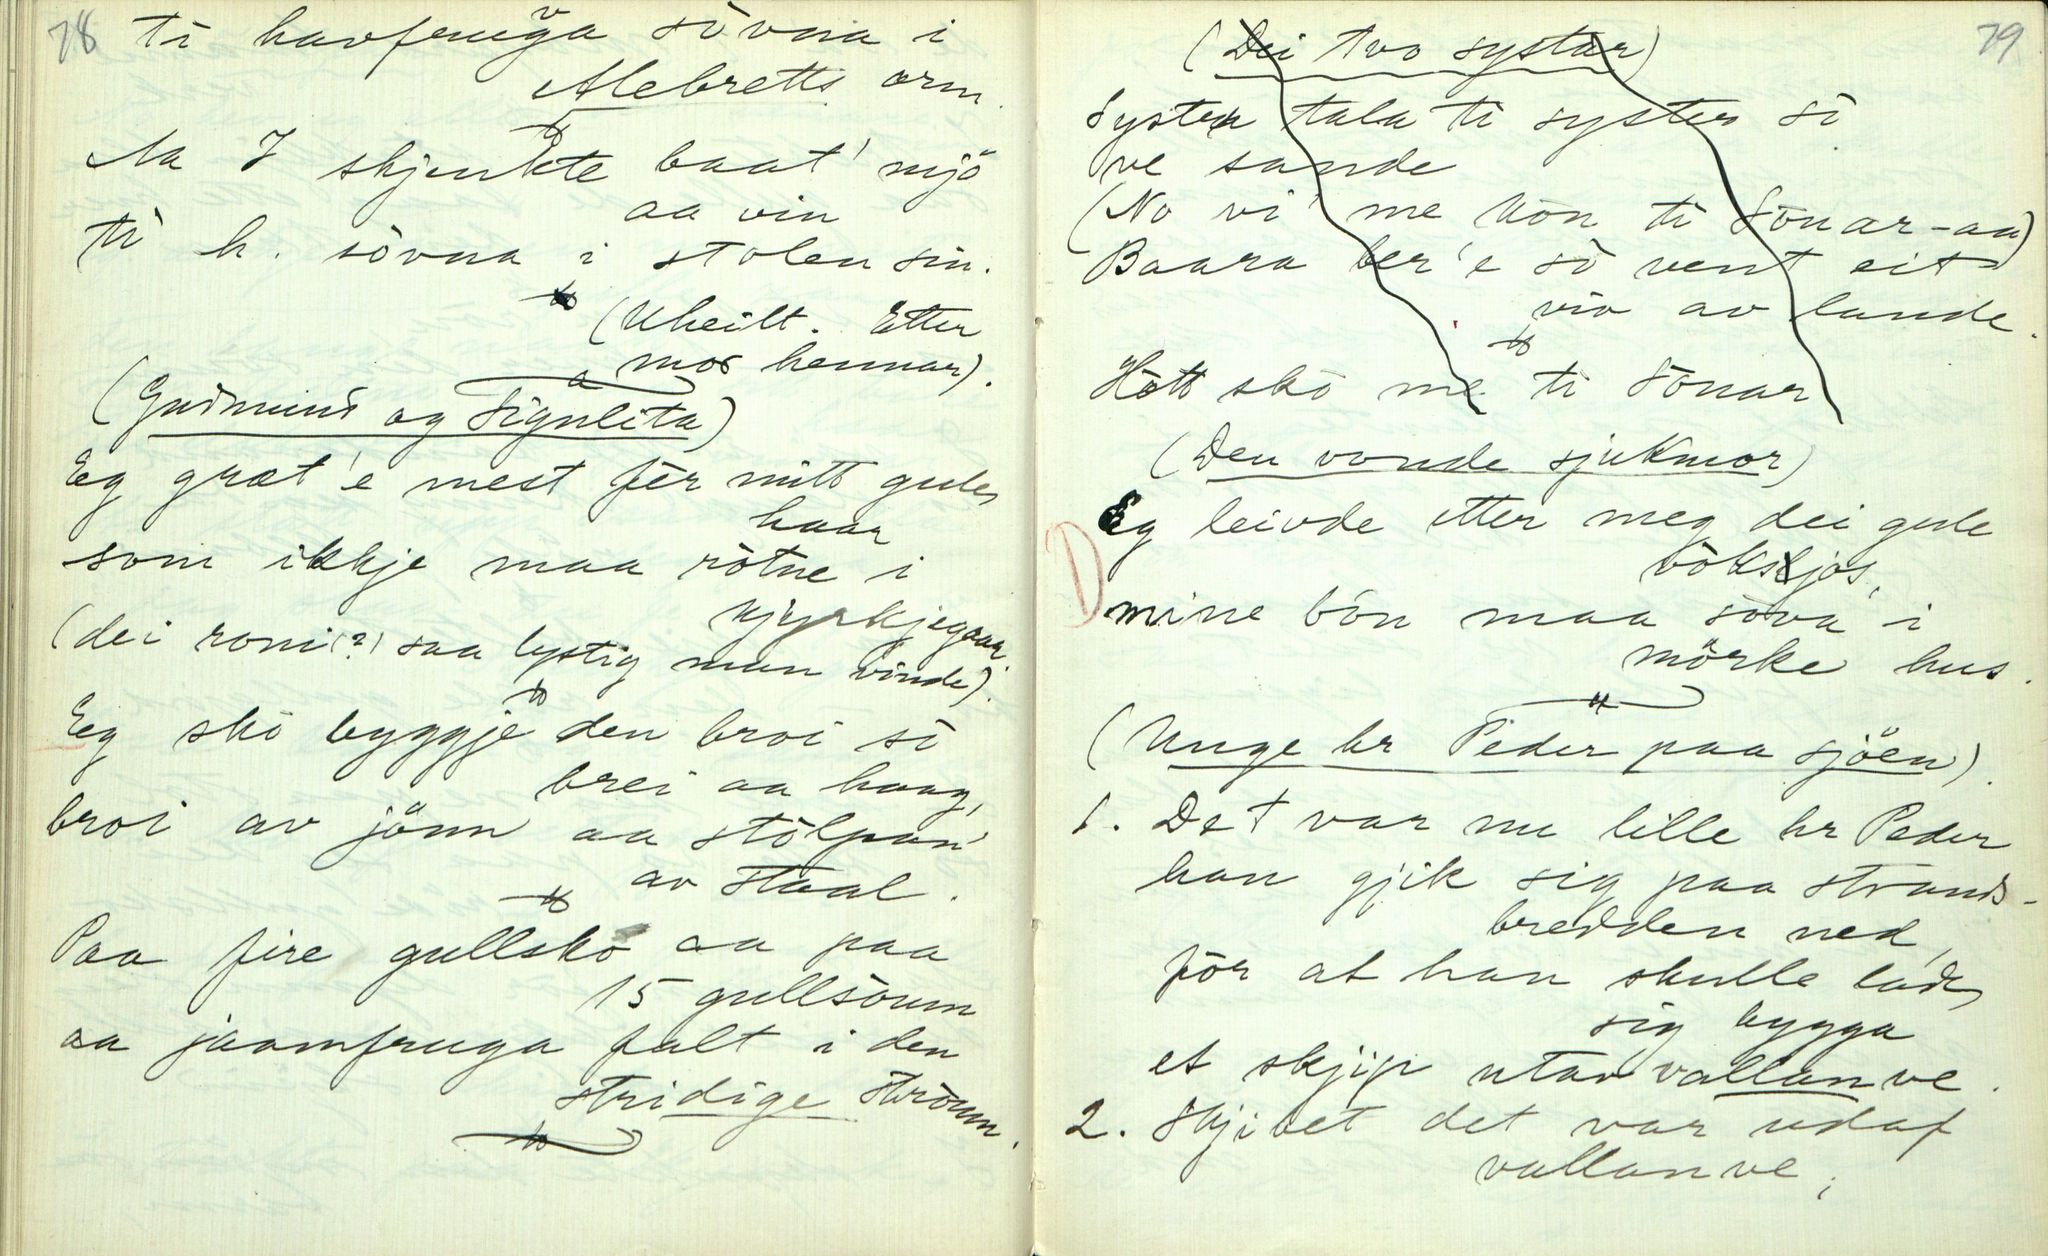 78
ti havfruga sòvna i
Alebretts arm.
Aa I skjenkte baat' mjö
aa vin
ti h. sòvna i stolen sin.
(Uheilt. Etter
mor hennar).
(Gudmund og Signelita)
Eg græt'e mest fèr mitt gule
haar
som ikkje maa ròtne i
kjyrkjegaar.
(dei roni(?) saa lystig mun vinde).
Eg skò byggje den broi sò
brei aa haag,
broi av jönn aa stòlpan'
av staal.
Paa fire gullskò aa paa
15 gullsòum
aa jaamfruga falt i den
stridige stròum.
79
(Dei tvo systar)
Syster tala ti syster si
ve sande
(No vi' me kòn ti Sònar-aa)
Baara ber'e sò vent eit
viv av lande.
Hòtt skò me ti Sònar
(Den vonde stjukmor)
Eg leivde etter meg dei gule
vòksljos,
mine bón maa sòva i
mörke hus.
(Unge hr Peder paa sjöen)
1. Det var nu lille hr Peder
han gjik sig paa strand-
bredden ned,
för at han skulle lade
sig bygga
et skjip utav vallanve.
2. Skjibet det var udaf
vallanve,